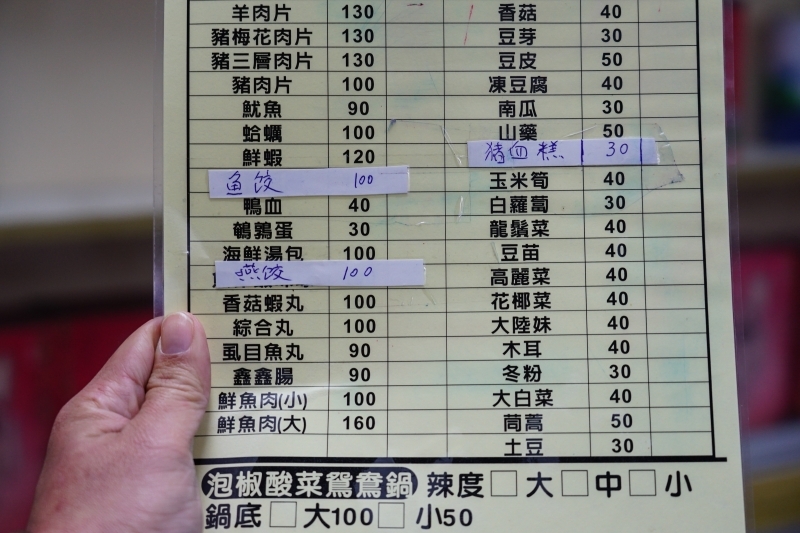 羊肉片 130 香菇 40
豬梅花肉片 130 豆芽 30
豬三層肉片 130 豆皮 50
豬肉片 100 凍豆腐 40
魷魚 90 南瓜 30
蛤蠣 100 山藥 50
鮮蝦 120 豬血糕 30
魚餃 100 玉米筍 40
鴨血 40 白蘿蔔 30
鵪鶉蛋 30 龍鬚菜 40
海鮮湯包 100 豆苗 40
燕餃 100 高麗菜 40
香菇蝦丸 100 花椰菜 40
綜合丸 100 大陸妹 40
虱目魚丸 90 木耳 40
鑫鑫腸 90 冬粉 30
鮮魚肉(小) 100 大白菜 40
鮮魚肉(大) 160 茼蒿 50
土豆 30
泡椒酸菜鴛鴦鍋 辣度□大□中□小
鍋底□大100□小50